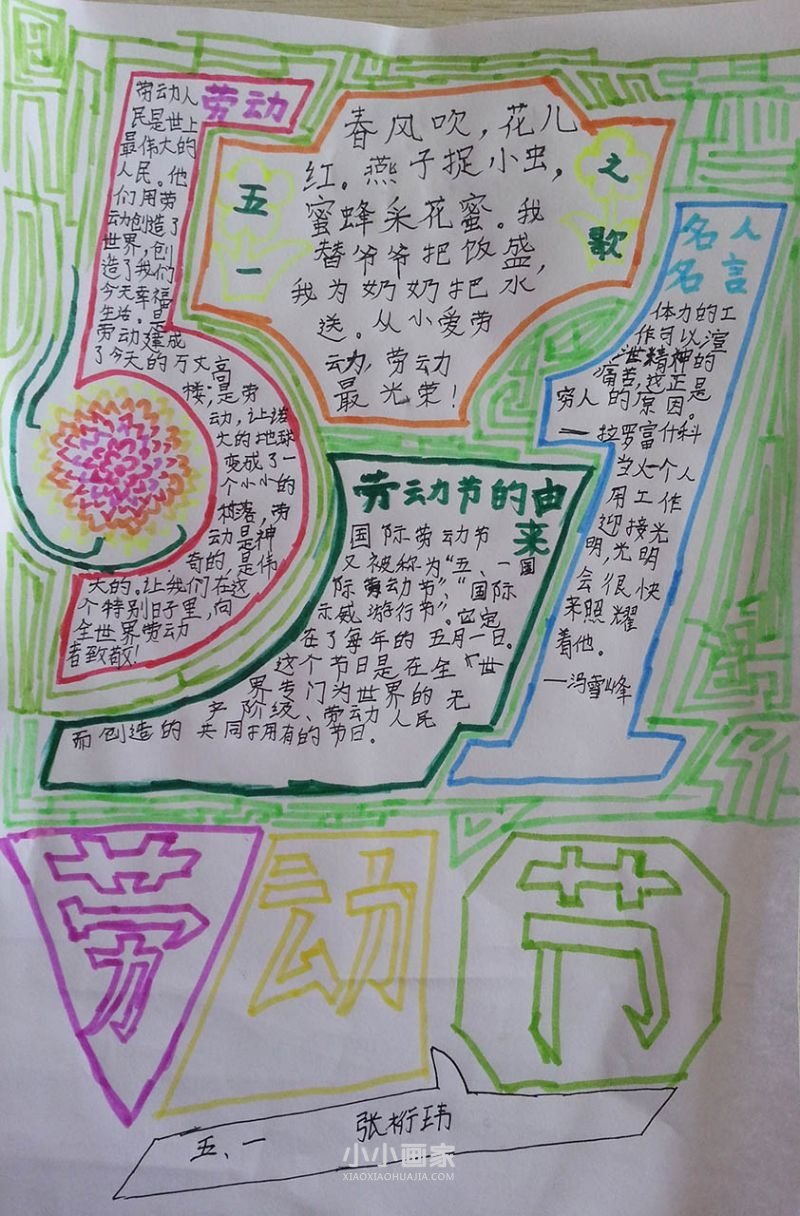 劳动
劳动人
民是世上
最伟大的
人民。他
们用劳
动创造了
世界,创
造了我们
今天幸福
生活。是
劳动建成
了今天的万丈高
楼,是劳
动,让诺
大的地球
变成了一
个小小的
村落,劳
动是神
奇的,是伟
大的。让我们在这
个特别日子里,向
全世界劳动
者致敬!
五一
之歌
春风吹,花儿
红。燕子捉小虫,
蜜蜂采花蜜。我
替爷爷把饭盛,
我为奶奶把水
送。从小爱劳
动,劳动
最光荣!
名人
名言
体力的工
作可以渲
泄精神的
痛苦,这正是
穷人的原因。
—拉罗富什科
当一个人
用工作
迎接光
明,光明
会很快
来照耀
着他。
—冯雪峰
劳动节的由
来
国际劳动节
又被称为“五、一国
际劳动节”、“国际
示威游行节”。它定
在了每年的五月一日。
这个节日是在全世
界专门为世界的无
产阶级、劳动人民
而创造的共同拥有的节日.
劳动节
五、一 张桁玮
小小画家
XIAOXIAOHUAJIA.COM